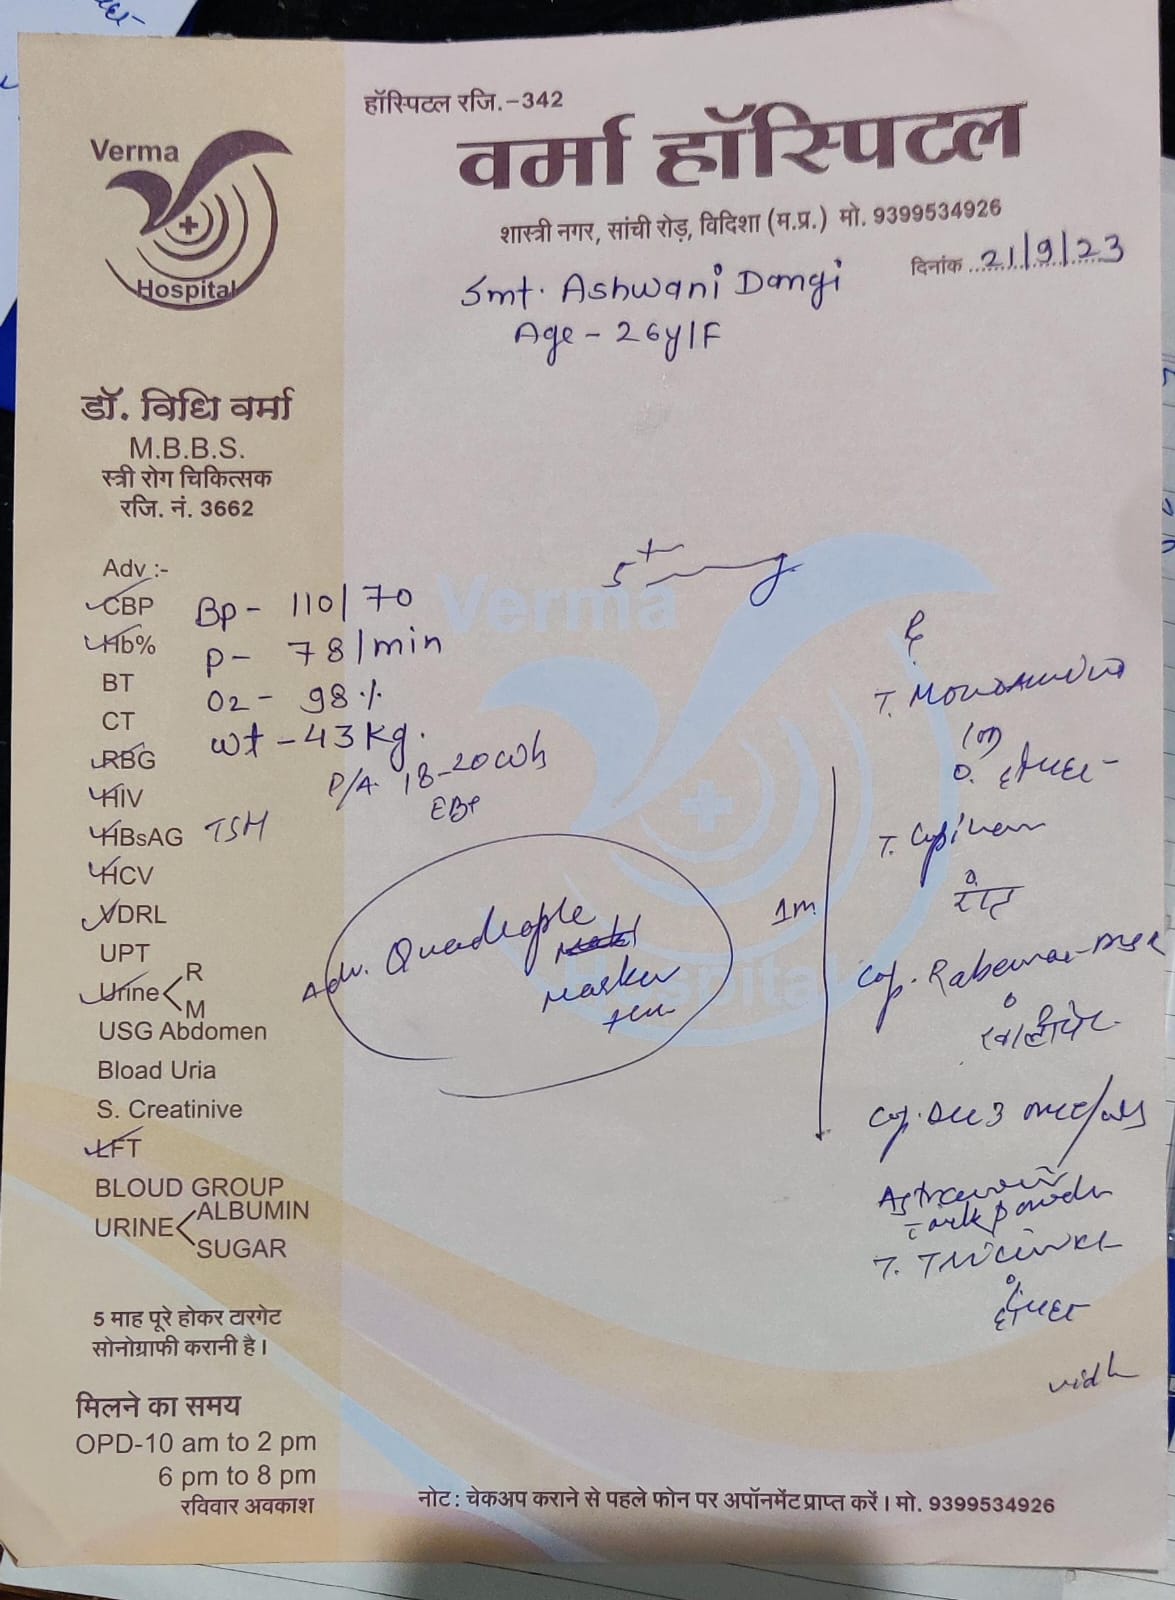 हॉस्पिटल रजि.-342
Verma
Hospital
वर्मा हॉस्पिटल
शास्त्री नगर, सांची रोड़, विदिशा (म.प्र.) मो. 9399534926
दिनांक 21/9/23
Smt. Ashwani Dangi
Age - 26y/F
डॉ. विधि वर्मा
M.B.B.S.
स्त्री रोग चिकित्सक
रजि. नं. 3662
Adv :-
CBP
Hb%
BT
CT
RBG
HIV
HBsAG TSH
HCV
VDRL
UPT
Urine < R
M
USG Abdomen
Bload Uria
S. Creatinive
LFT
BLOUD GROUP
URINE < ALBUMIN
SUGAR
5 माह पूरे होकर टारगेट
सोनोग्राफी करानी है।
मिलने का समय
OPD-10 am to 2 pm
6 pm to 8 pm
रविवार अवकाश
BP - 110/70
P - 78/min
O2 - 98%
wt - 43 kg.
P/A 18-20
Adv. Quadraple
Marker
1m
T.
T.
Cap.
खालीपेट
Cap.
powder
T.
Verma
Hospital
नोट : चेकअप कराने से पहले फोन पर अपॉनमेंट प्राप्त करें। मो. 9399534926